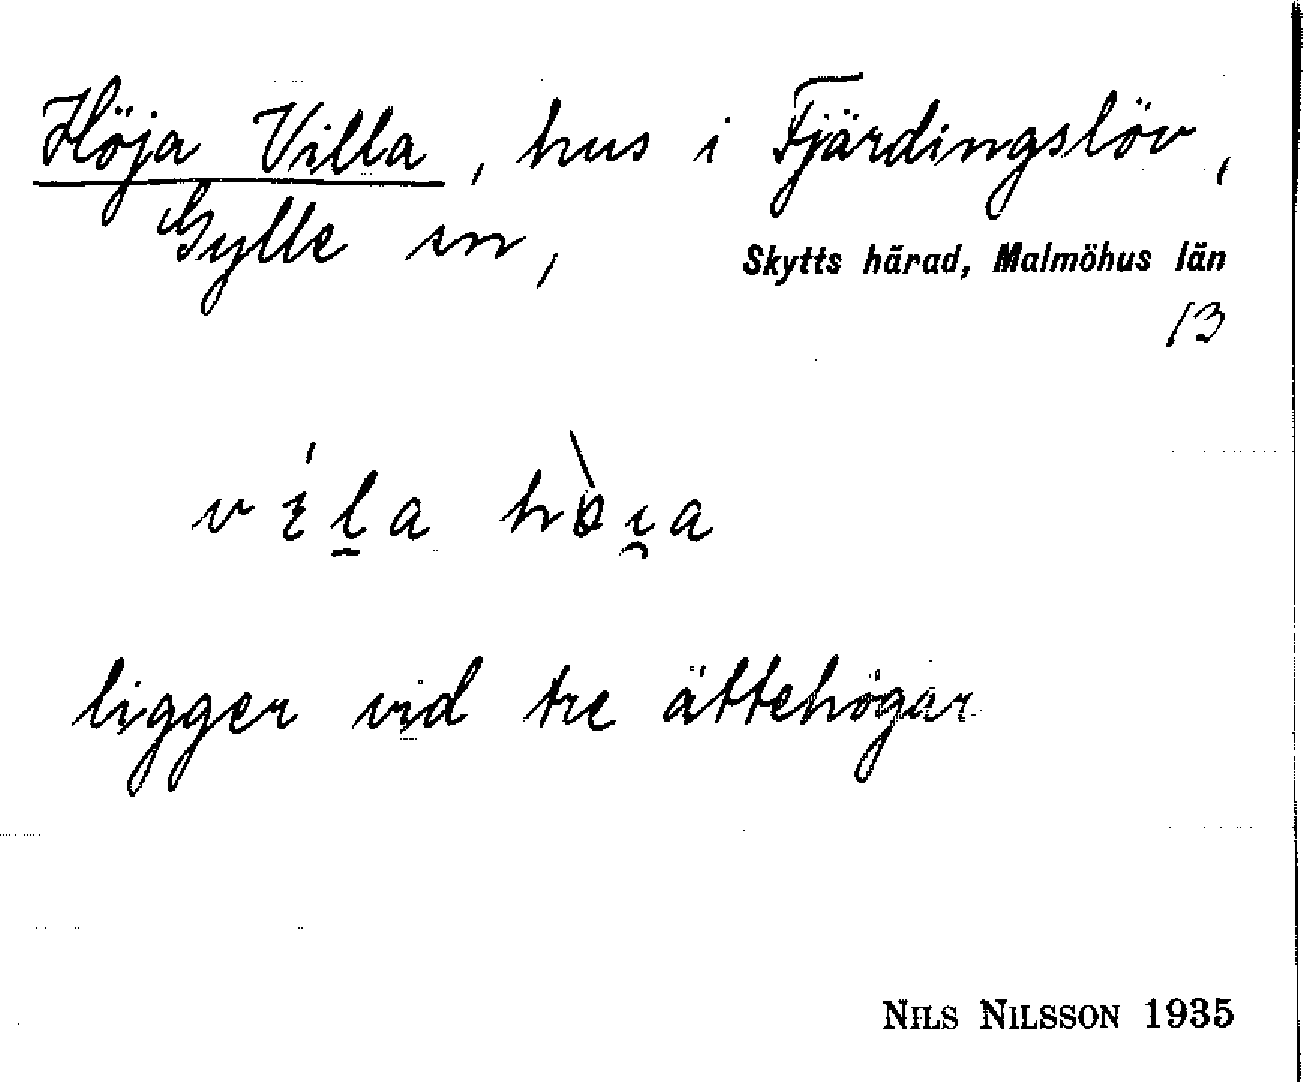 Höja Villa, hus i Fjärdingslöv,
Gylle sn,
Skytts härad, Malmöhus län
13
ligger vid tre ättehögar
NILS NILSSON 1935